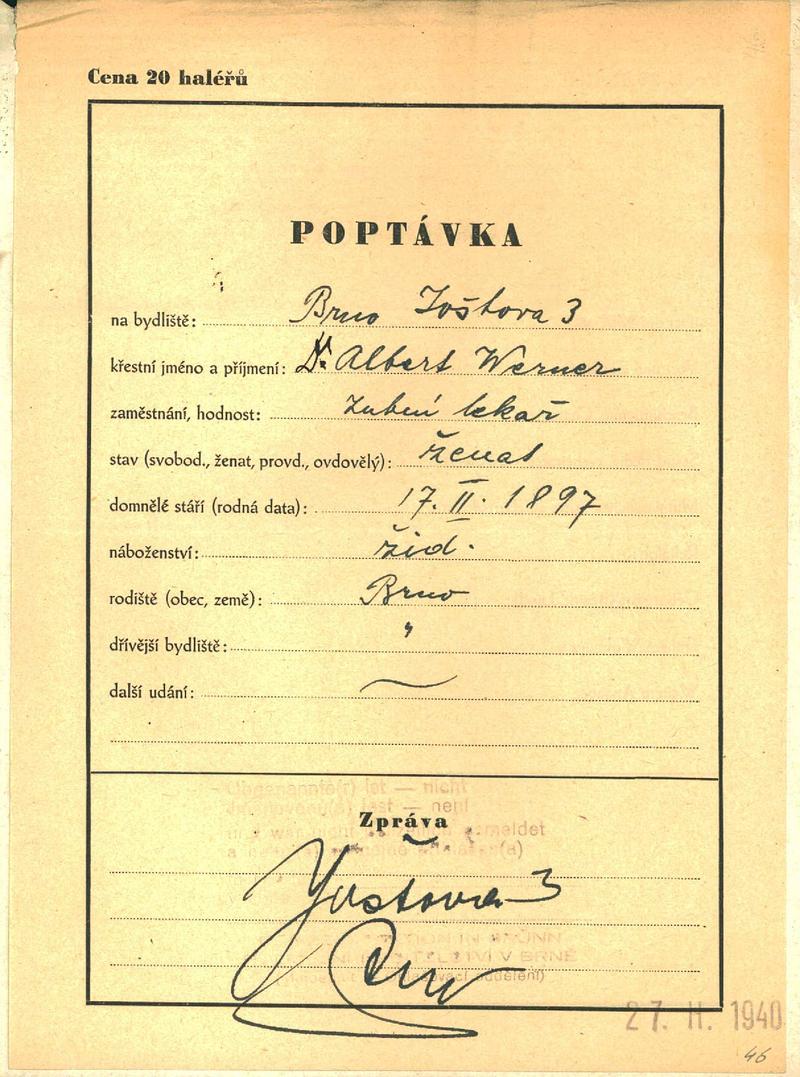 Cena 20 haléřů
POPTÁVKA
na bydliště: Brno Joštova 3
křestní jméno a příjmení: Dr. Albert Werner
zaměstnání, hodnost: zubní lékař
stav (svobod., ženat, provd., ovdovělý): ženat
domnělé stáří (rodná data): 17. II. 1897
náboženství: žid.
rodiště (obec, země): Brno
dřívější bydliště: "
další udání: —
Obgenannte(r) ist — nicht
Jmenovaný(á) jest — není
Zpráva
Joštova 3
27. II. 1940
46